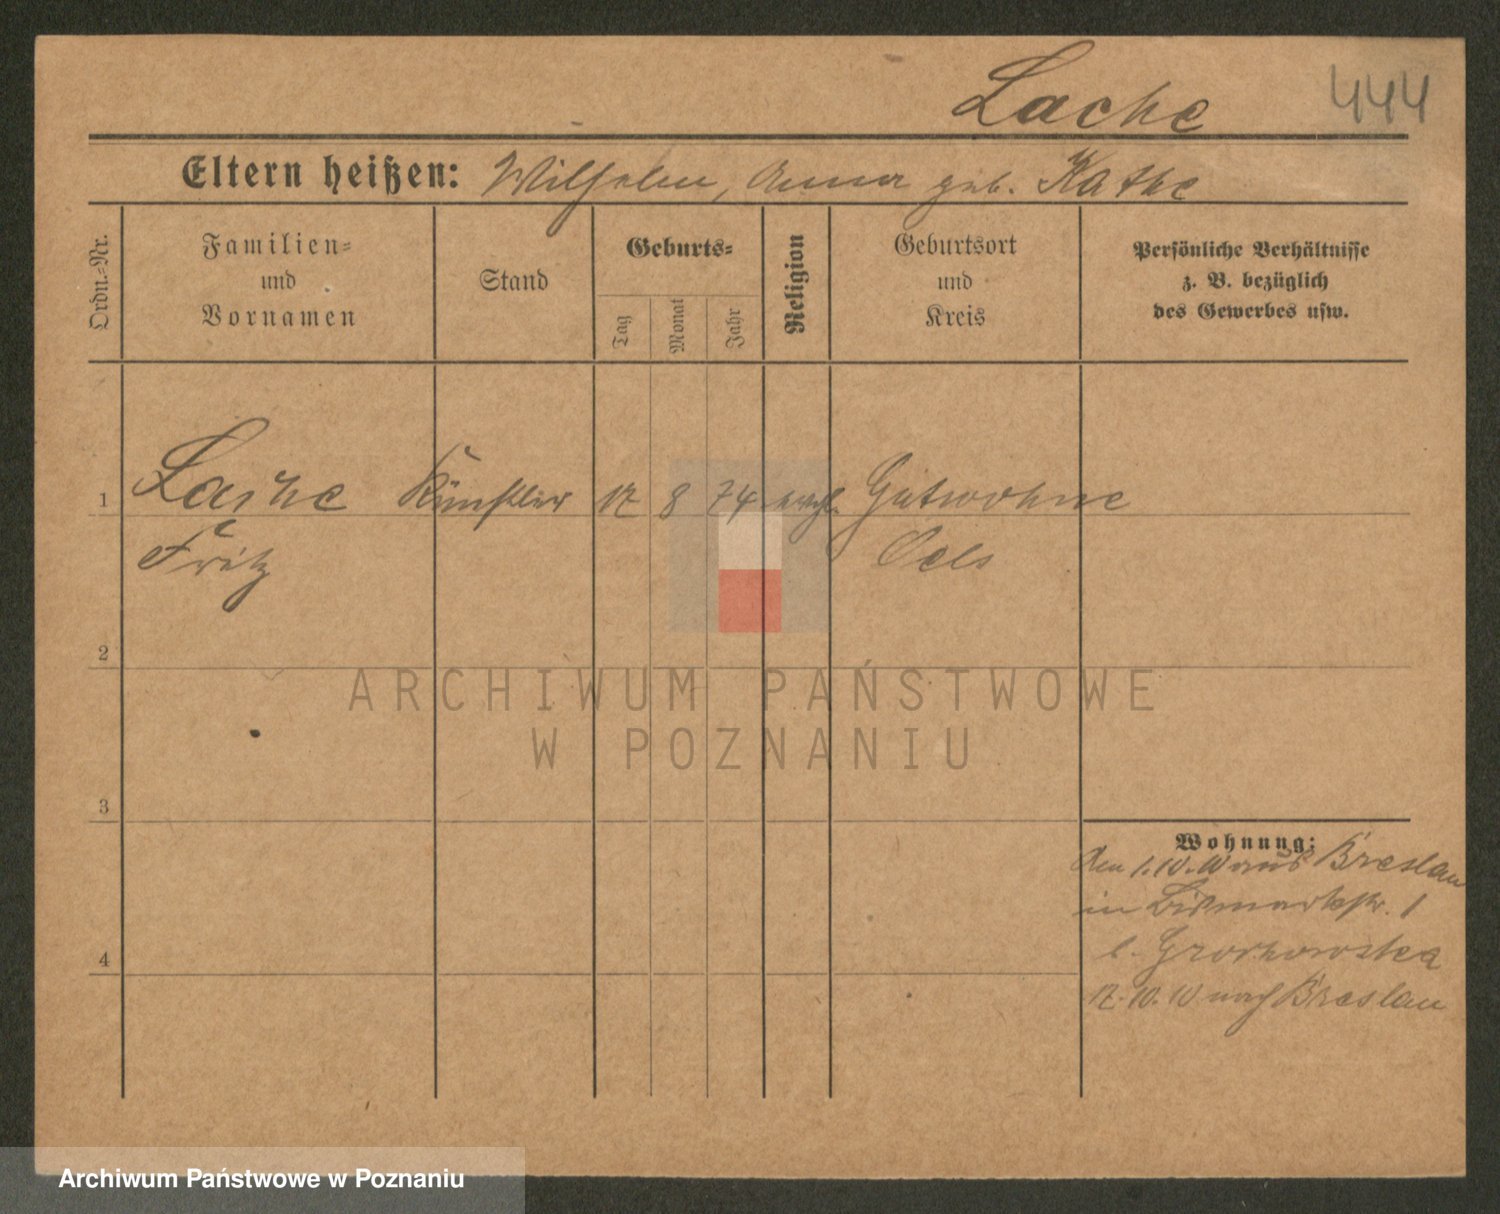 Lache 444
Eltern heißen: Wilhelm, Anna geb. Kathe
Ordn.-Nr.
Familien-
und
Vornamen
Stand
Geburts-
Tag
Monat
Jahr
Religion
Geburtsort
und
Kreis
Persönliche Verhältnisse
z. B. bezüglich
des Gewerbes usw.
1 Lache Künstler 17 8 74 evgl. Gutwohne
Fritz Oels
2
3
4
Wohnung:
den 1.10.10 aus Breslau
in Bismarckstr. 1
b. Grochowska
17.10.10 nach Breslau
ARCHIWUM PAŃSTWOWE
W POZNANIU
Archiwum Państwowe w Poznaniu